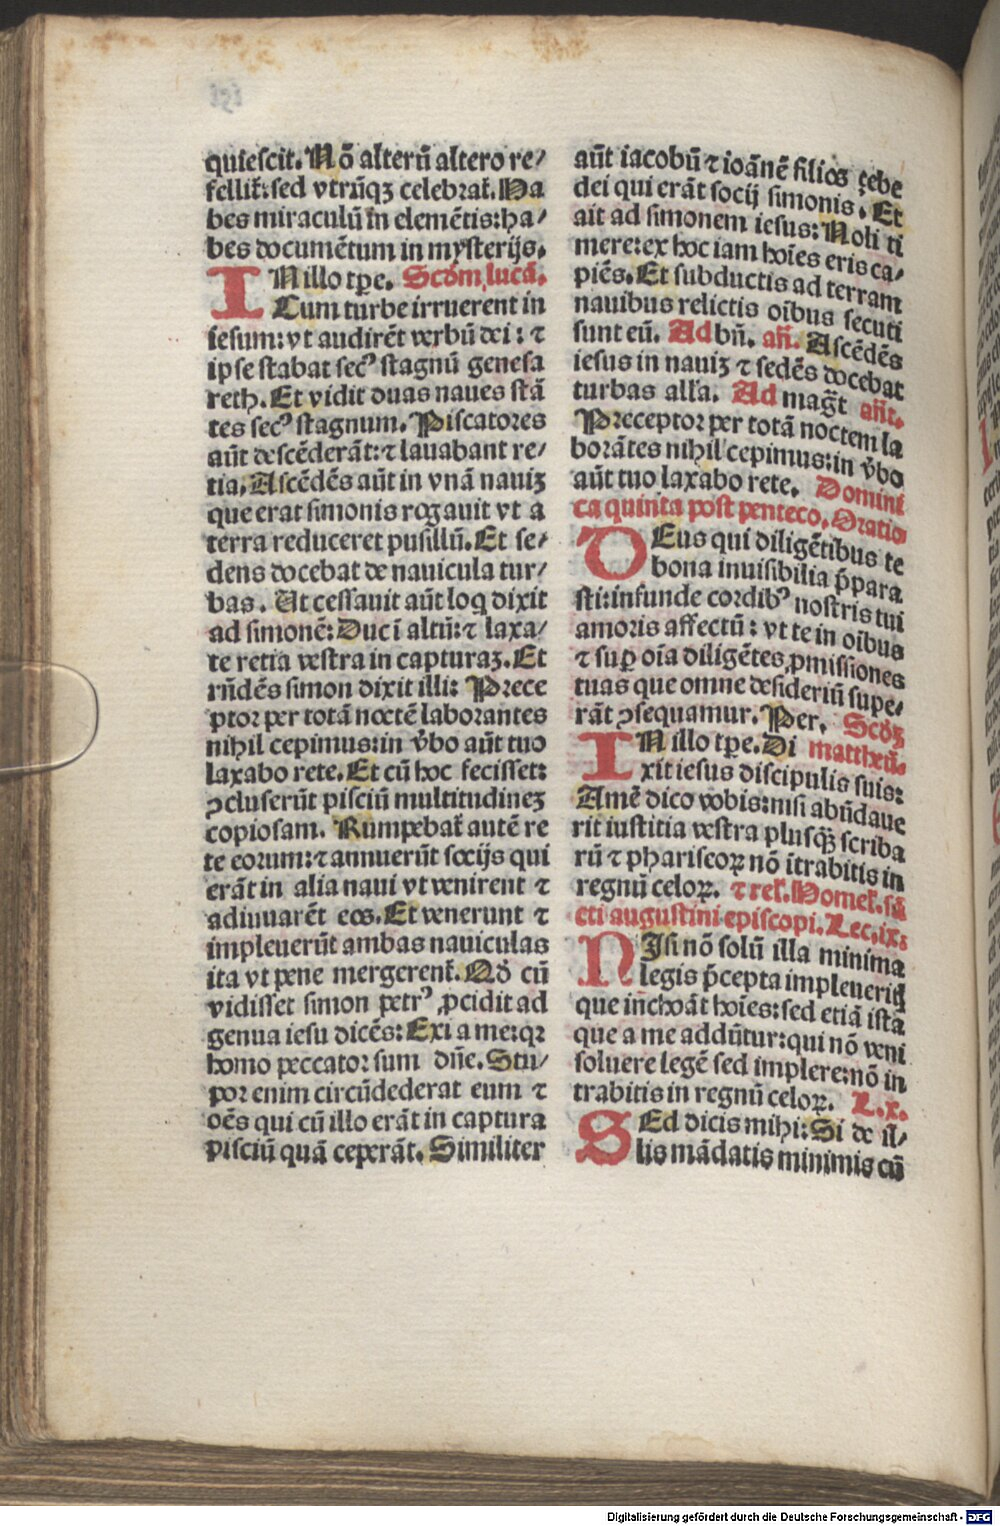 quiescit. Nō alterū altero re⸗
fellit̄: sed vtrūqȝ celebrat̄. Ha
bes miraculū in elemētis: ha⸗
bes documētum in mysterijs.
IN illo tꝑe. Scdm lucā.
Cum turbe irruerent in
iesum: vt audirēt verbū dei: ⁊
ipse stabat secꝰ stagnū genesa
reth. Et vidit duas naues stā
tes secꝰ stagnum. Piscatores
aūt descēderāt: ⁊ lauabant re⸗
tia. Ascēdēs aūt in vnā nauiȝ
que erat simonis rogauit vt a
terra reduceret pusillū. Et se⸗
dens docebat de nauicula tur⸗
bas. Ut cessauit aūt loq̄ dixit
ad simonē: Duc ī altū: ⁊ laxa⸗
te retia vestra in capturaȝ. Et
rn̄dēs simon dixit illi: Prece
ptor per totā noctē laborantes
nihil cepimus: in v̄bo aūt tuo
laxabo rete. Et cū hoc fecisset:
ꝯcluserūt pisciū multitudineȝ
copiosam. Rumpebat̄ autē re
te eorum: ⁊ annuerūt socijs qui
erāt in alia naui vt venirent ⁊
adiuuarēt eos. Et venerunt ⁊
impleuerūt ambas nauiculas
ita vt pene mergerent̄. Qd̄ cū
vidisset simon petrꝰ ꝓcidit ad
genua iesu dicēs: Exi a me: qꝛ
homo peccator sum dn̄e. Stu⸗
por enim circūdederat eum ⁊
oēs qui cū illo erāt in captura
pisciū quā ceperāt. Similiter
aūt iacobū ⁊ ioānē filios ȝebe
dei qui erāt socij simonis. Et
ait ad simonem iesus: Noli ti
mere: ex hoc iam hoīes eris ca⸗
piēs. Et subductis ad terram
nauibus relictis oībus secuti
sunt eū. Ad bn̄. an̄. Ascēdēs
iesus in nauiȝ ⁊ sedēs docebat
turbas alla. Ad magt̄ an̄t.
Preceptor per totā noctem la
borātes nihil cepimus: in v̄bo
aūt tuo laxabo rete. Domini
ca quinta post penteco. Oratio
DEus qui diligētibus te
bona inuisibilia p̄para
sti: infunde cordibꝰ nostris tui
amoris affectū: vt te in oībus
⁊ suꝑ oīa diligētes ꝓmissiones
tuas que omne desideriū supe⸗
rāt ꝯsequamur. Per. Scdȝ
IN illo tꝑe. Di mattheū.
xit iesus discipulis suis:
Amē dico vobis: nisi abūdaue
rit iustitia vestra plusqȝ scriba
rū ⁊ phariseoꝝ nō ītrabitis in
regnū celoꝝ. ⁊ rel̄. Homel̄. sā
cti augustini episcopi. Lec. ix:
NIsi nō solū illa minima
legis p̄cepta impleueritꝭ
que inchoāt hoīes: sed etiā ista
que a me addūtur: qui nō veni
soluere legē sed implere: nō in
trabitis in regnū celoꝝ. L. x.
SEd dicis mihi: Si de il⸗
lis mādatis minimis cū
Digitalisierung gefördert durch die Deutsche Forschungsgemeinschaft - DFG